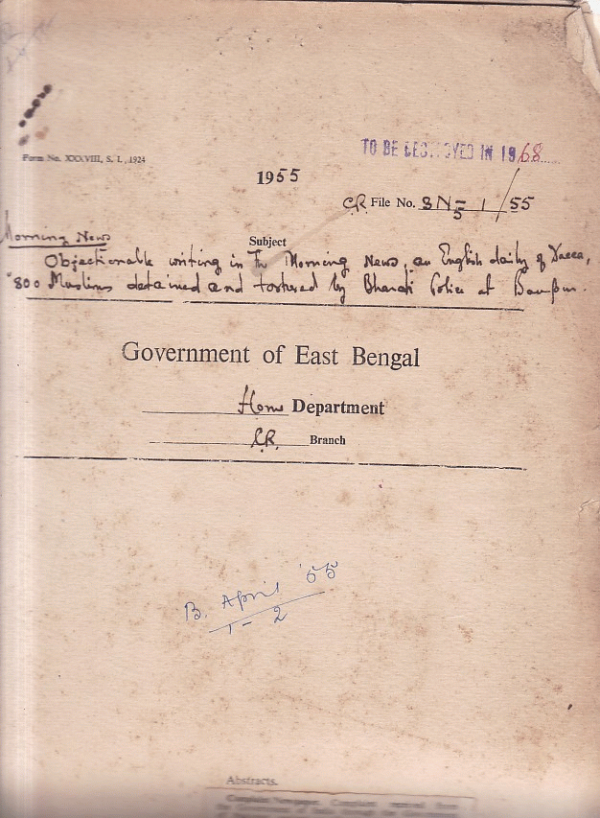 Form No. XXXVIII, S. I., 1924
TO BE DESTROYED IN 1968
1955
C.R. File No. 8N5-1/55
Morning News
Subject
Objectionable writing in The Morning News, an English daily of Dacca,
"800 Muslims detained and tortured by Bharati Police at
Government of East Bengal
Home Department
C.R. Branch
B. April '55
1-2
Abstracts.